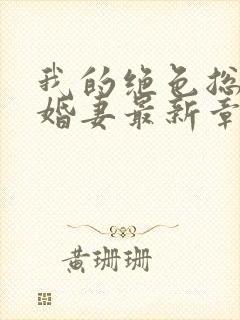 我的绝色总
婚妻最新章
黄珊珊